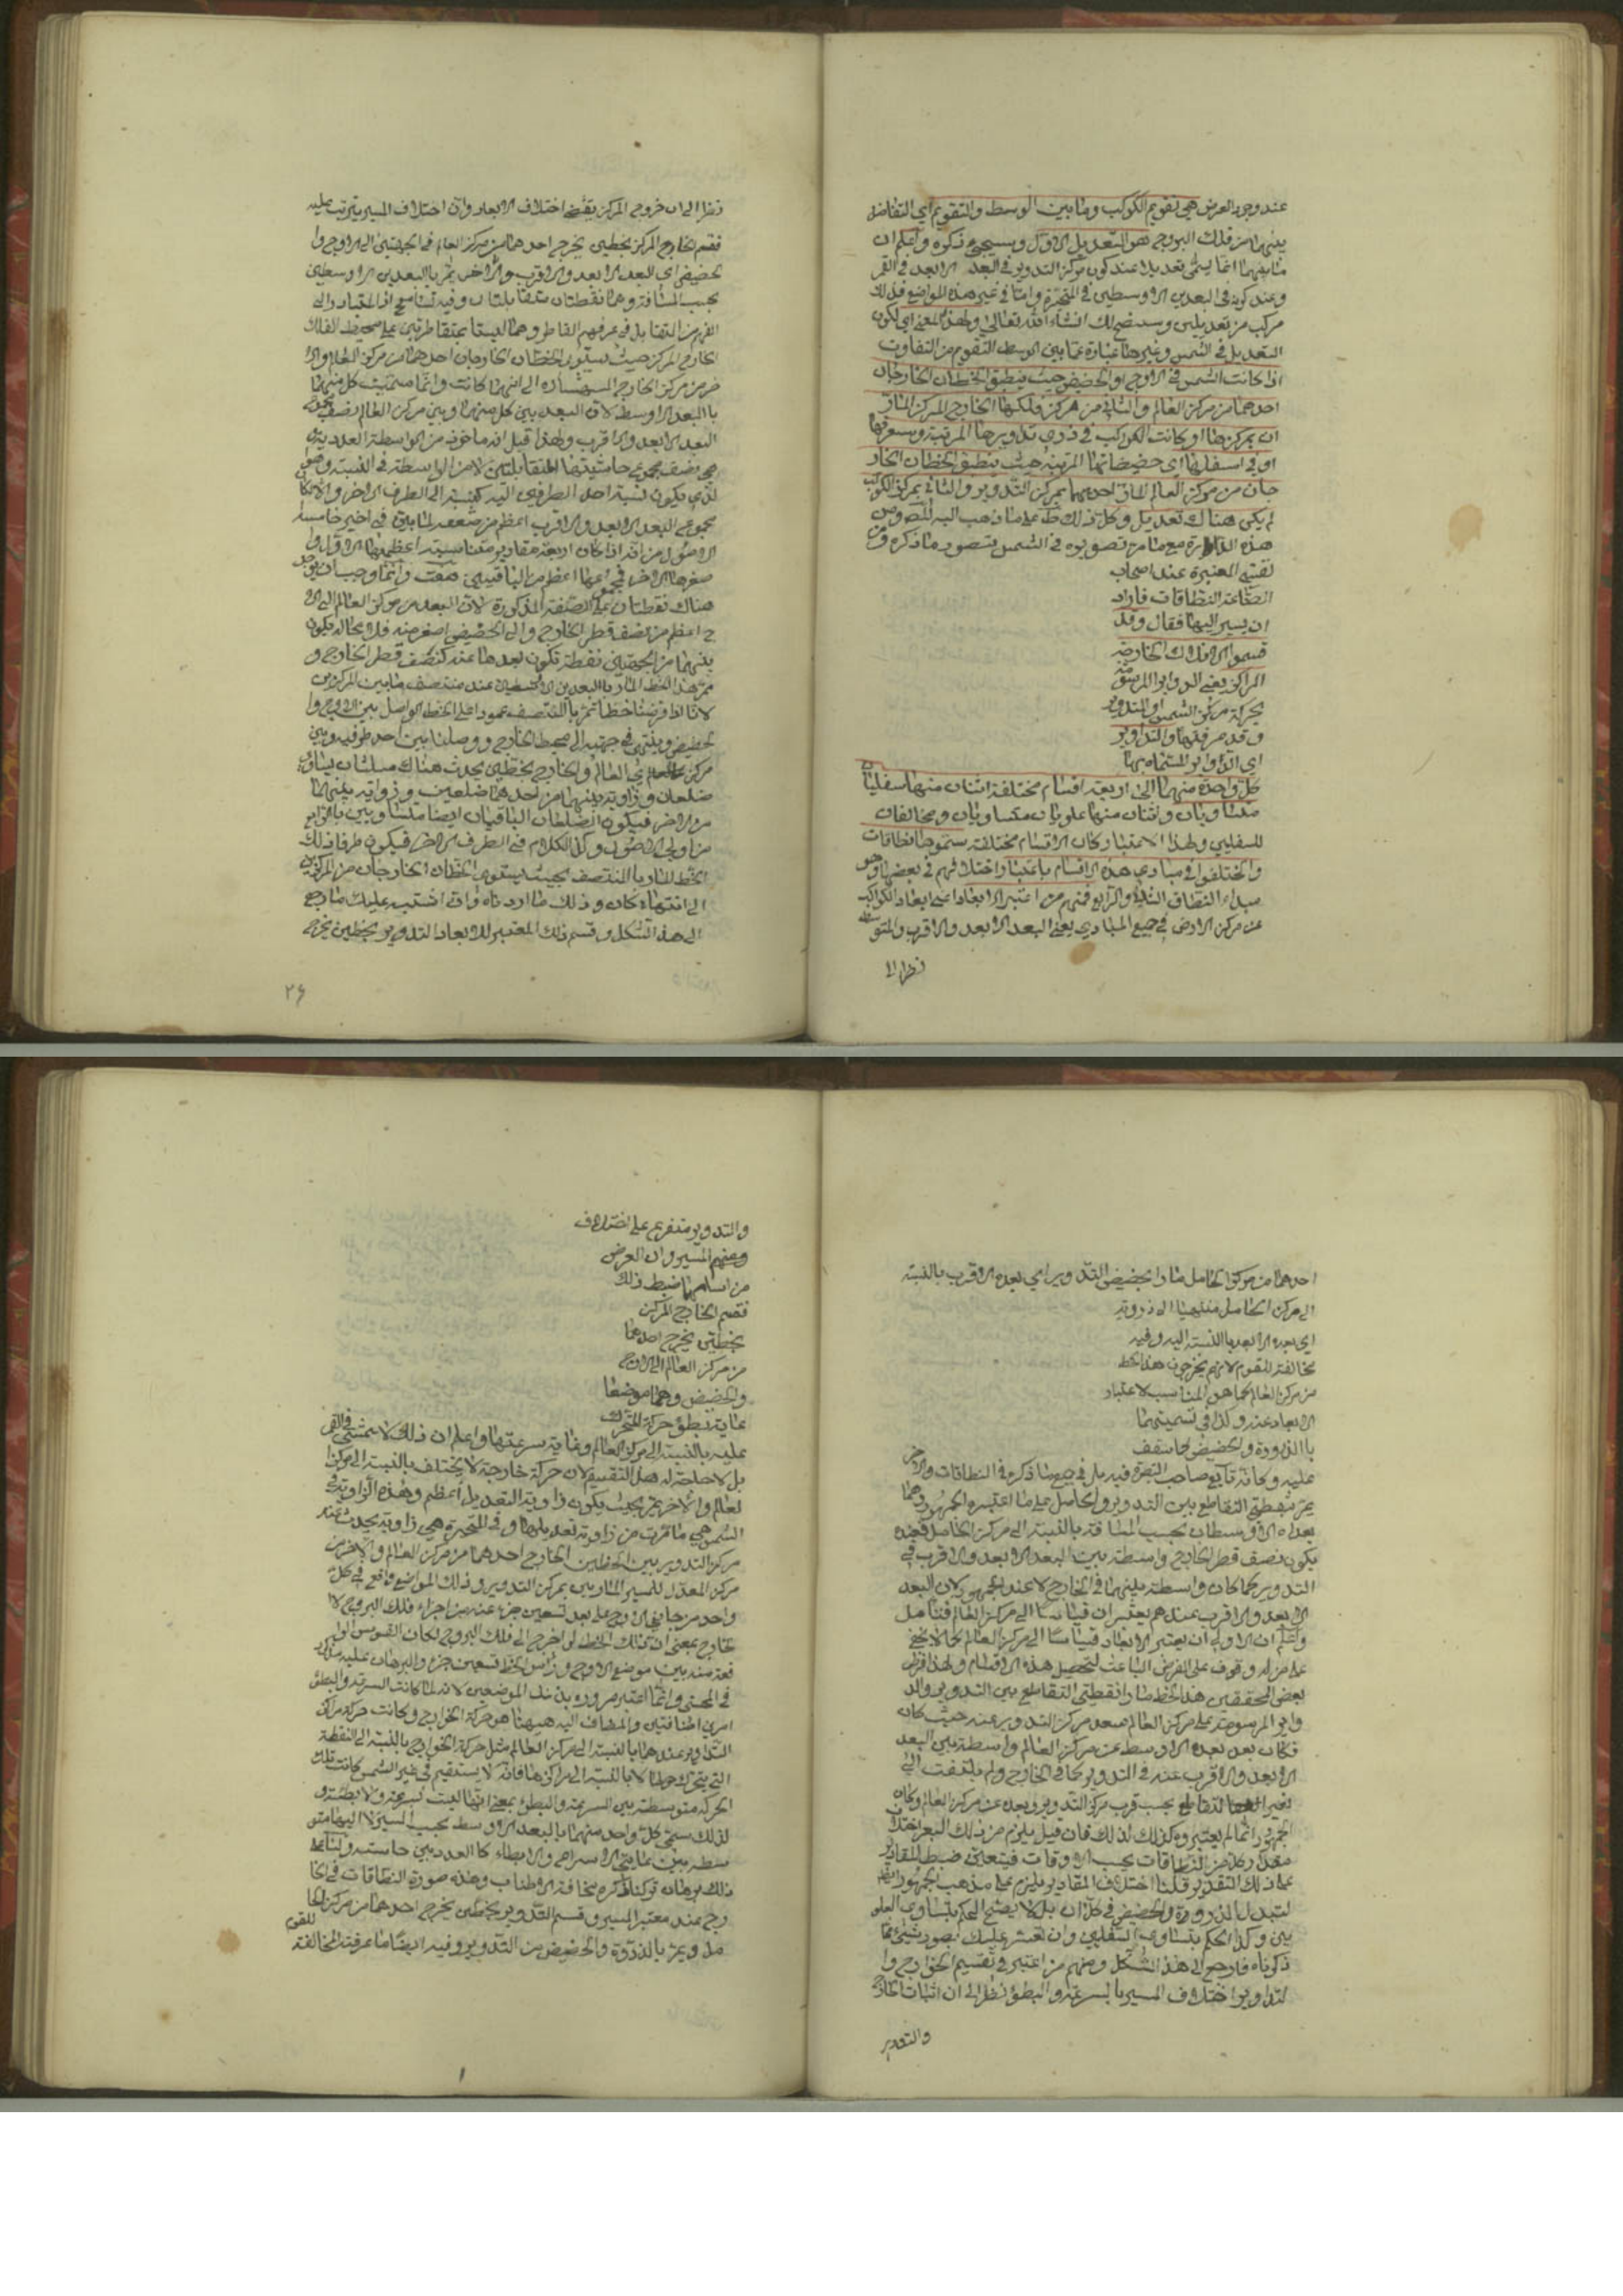 عند وجود العرض هي تقويم الكوكب وما بين الوسط والتقويم اي التفاضل
بينهما من فلك البروج هو التعديل الاول وسيجيء ذكره واعلم ان
ما بينهما انما يسمى تعديلا عند كون مركز التدوير في البعد الابعد في القمر
وعند كونه في البعدين الاوسطين في المتحيرة واما في غير هذه المواضع فذلك
مركب من تعديلين وسيتضح لك انشاء الله تعالى ولهذا المعنى اي لكون
التعديل في الشمس وغيرها عبارة عما بين الوسط والتقويم من التفاوت
اذا كانت الشمس في الاوج او الحضيض حيث ينطبق الخطان الخارجان
احدهما من مركز العالم والثاني من مركز فلكها الخارج المركز الماران
ان بمركزها او كانت الكواكب في ذرى تداويرها المرئية وستعرفها
او في اسفلها اي حضيضاتها المرئية حيث ينطبق الخطان الخار
جان من مركز العالم المار احدهما بمركز التدوير والثاني بمركز الكوكب
لم يكن هناك تعديل وكل ذلك ظ على ما ذهب اليه المص ومن
هذه الدائرة مع ما مر تصويره في الشمس يتصور ما ذكره ومن
القسي المعتبرة عند اصحاب
الصناعة النطاقات فاراد
ان يسير اليها فقال وقد
قسموا الافلاك الخارجة
المراكز يعني الدوائر المرتسمة
بحركة مركز الشمس او التدوير
وقد عرفتها والتداوير
اي الدوائر المسماة بها
كل واحدة منهما الى اربعة اقسام مختلفة اثنان منهما سفليان
متساويان واثنان منهما علويان متساويان ومخالفان
للسفليين ولهذا الاعتبار وكان الاقسام مختلفة سموها نطاقات
واختلفوا في مبادي هذه الاقسام باعتبار اختلافهم في بعضها وهو
مبداء النطاق الثاني والرابع فمنهم من اعتبر الابعاد اعني ابعاد الكواكب
عن مركز الارض في جميع المبادي يعني البعد الابعد والاقرب والمتوسط
نظرا الى
نظرا الى ان خروج المركز يقتضي اختلاف الابعاد وان اختلاف المسير يترتب عليه
فقسم الخارج المركز بخطين يخرج احدهما من مركز العالم في الجهتين الى الاوج وا
لحضيض اي البعد الابعد والاقرب والاخر يمر بالبعدين الاوسطين
بحسب المسافة وهما نقطتان متقابلتان وفيه تسامح اذ المتبادر الى
الفهم من التقابل في عرفهم القاطر وهما ليستا بمتقاطرتين على محيط الفلك
الخارج المركز حيث يستوي الخطان الخارجان احدهما من مركز العالم والا
خر من مركز الخارج المنتهيان الى ايتهما كانت وانما سميت كل منهما
بالبعد الاوسط لان البعد بين كل منهما وبين مركز العالم نصف مجموع
البعد الابعد والاقرب ولهذا قيل انه ماخوذ من الواسطة العددية
هي نصف مجموع حاشيتها المتقابلتين لا من الواسطة في النسبة وهي
لذي يكون نسبة احد الطرفين اليه كنسبته الى الطرف الاخر والا لكان
مجموع البعد الابعد والاقرب اعظم من ضعفه لما تبين في اخير خامسة
الاصول من انه اذا كان اربعة مقادير متناسبة اعظمها الاول وا
صغرها الاخر فجمعهما اعظم من الباقيين هف وانما وجب ان يوجد
هناك نقطتان على الصفة المذكورة لان البعد من مركز العالم الى الاو
ج اعظم من نصف قطر الخارج والى الحضيض اصغر منه فلا محالة يكون
بينهما من الجهتين نقطة يكون بعدها عنه كنصف قطر الخارج و
يمر هذا الخط المار بالبعدين الاوسطين عند منتصف ما بين المركزين
لانا اذا فرضنا خطا يمر بالمنتصف عمودا على الخط الواصل بين الاوج وا
لحضيض وينتهي في جهتيه الى محيط الخارج ووصلنا بين احد طرفيه وبين
مركزي العالم والخارج بخطين يحدث هناك مثلثان يساوي
ضلعان وزاوية بينهما من احدهما ضلعين وزواية بينهما
من الاخر فيكون الضلعان الباقيان ايضا متساويين بالرابع
من اولى الاصول وكذا الكلام في الطرف الاخر فيكون طرفا ذلك
الخط المار بالمنتصف بحيث يستوي الخطان الخارجان من المركزين
الى ايتهما كان وذلك ما اردناه وان اشتبه عليك فارجع
الى هذا الشكل وقسم ذلك المعتبر للابعاد التدوير بخطين يخرج
٢٦
احدهما من مركز الحامل مارا بحضيض التدوير اي بعده الاقرب بالنسبة
الى مركز الحامل منتهيا الى ذروته
اي بعده الابعد بالنسبة اليه وفيه
مخالفة للقوم لانهم يخرجون هذا الخط
من مركز العالم كما هو المناسب لاعتبار
الابعاد عنه وكذا في تسميتهما
بالذروة والحضيض لما ستقف
عليه وكانه تابع صاحب التبصرة فيه بل في جميع ما ذكره في النطاقات والاخر
يمر بنقطتي التقاطع بين التدوير والحامل على ما اعتبره الجمهور وهما
بعداه الاوسطان بحسب المسافة بالنسبة الى مركز الحامل فعنده
يكون نصف قطر الخارج واسطة بين البعد الابعد والاقرب في
التدوير كما كان واسطة بينهما في الخارج لا عند الجمهور لان البعد
الابعد والاقرب عندهم يعتبران قياسا الى مركز العالم فتامل
واعلم ان الاولى ان يعتبر الابعاد قياسا الى مركز العالم كما لا يخفى
على من له وقوف على الغرض الباعث لتحصيل هذه الاقسام ولهذا فرض
بعض المحققين هذا الخط مارا بنقطتي التقاطع بين التدوير والد
وائر المرسومة على مركز العالم ببعد مركز التدوير عنه حيث كان
فكان بعد بعده الاوسط عن مركز العالم واسطة بين البعد
الابعد والاقرب عنه في التدوير كما في الخارج ولم يلتفت الى
تغير التقاطع بحسب قرب مركز التدوير وبعده عن مركز العالم وكان
الجمهور انما لم يعتبروه كذلك لذلك فان قيل يلزم من ذلك التغير اختلاف
مقدار كل من النطاقات بحسب الاوقات فيتعذر ضبط المقادير
على ذلك التقدير قلنا اختلاف المقادير يلزم على مذهب الجمهور ايضا
لتبدل الذروة والحضيض في كل ان بل لا يصح الحكم بتساوي العلو
يين وكذا الحكم بتساوي السفليين وان تعسر عليك تصور شيء مما
ذكرناه فارجع الى هذا الشكل ومنهم من اعتبر في تقسيم الخوارج وا
لتداوير اختلاف المسير بالسرعة والبطؤ نظرا الى ان اثبات الخارج
والتدوير
والتدوير متفرع على اختلاف
المسير وان الغرض
من اقسامها ضبط ذلك
فقسم الخارج المركز
بخطين يخرج احدهما
من مركز العالم الى الاوج
والحضيض وهما موضعا
غاية بطؤ حركة المتحرك
عليه بالنسبة الى مركز العالم وغاية سرعتها واعلم ان ذلك لا يتمشى في القمر
بل لا حاجة له هذا التقسيم لان حركة خارجه لا يختلف بالنسبة الى مركز ا
لعالم والاخر يمر بحيث يكون زاوية التعديل اعظم وهذه الزاوية في
الشمس هي ما مرت من زاوية تعديلها و في المتحيرة هي زاوية يحدث عند
مركز التدوير بين الخطين الخارج احدهما من مركز العالم والاخر من
مركز المعدل للمسير المارين بمركز التدوير وذلك المواضع واقع في كل
واحد من جانبي الاوج على بعد تسعين جزء عنه من اجزاء فلك البروج لا ا
لخارج بمعنى ان ذلك الخط لو اخرج الى فلك البروج لكان القوس الوا
قعة منه بين موضع الاوج وراس الخط تسعين جزء والبرهان عليه مذكور
في المجسطي وانما اعتبر مروره بذينك الموضعين لانه لما كانت السرعة والبطؤ
امرين اضافيين والمضاف اليه ههنا هو حركة الخوارج وكانت حركة مراكز
التداوير عندهما بالنسبة الى مركز العالم مثل حركة الخوارج بالنسبة الى النقطة
التي يتحرك حولها لا بالنسبة الى مراكزها فانه لا يستقيم في غير الشمس كانت تلك
الحركة متوسطة بين السريعة والبطؤ بمعنى انها ليست سريعة ولا بطيئة و
لذلك سمي كل واحد منهما بالبعد الاوسط بحسب المسير لا انهما متو
سطة بين غايتي الاسراع والابطاء كالعدد بين حاشيتيه ولنا على
ذلك برهان تركنا ذكره مخافة الاطناب وهذه صورة النطاقات في الخا
رج عند معتبر المسير وقسم التدوير بخطين يخرج احدهما من مركز الحا
مل ويمر بالذروة والحضيض من التدوير وفيه ايضا ما عرفته من المخالفة للقوم